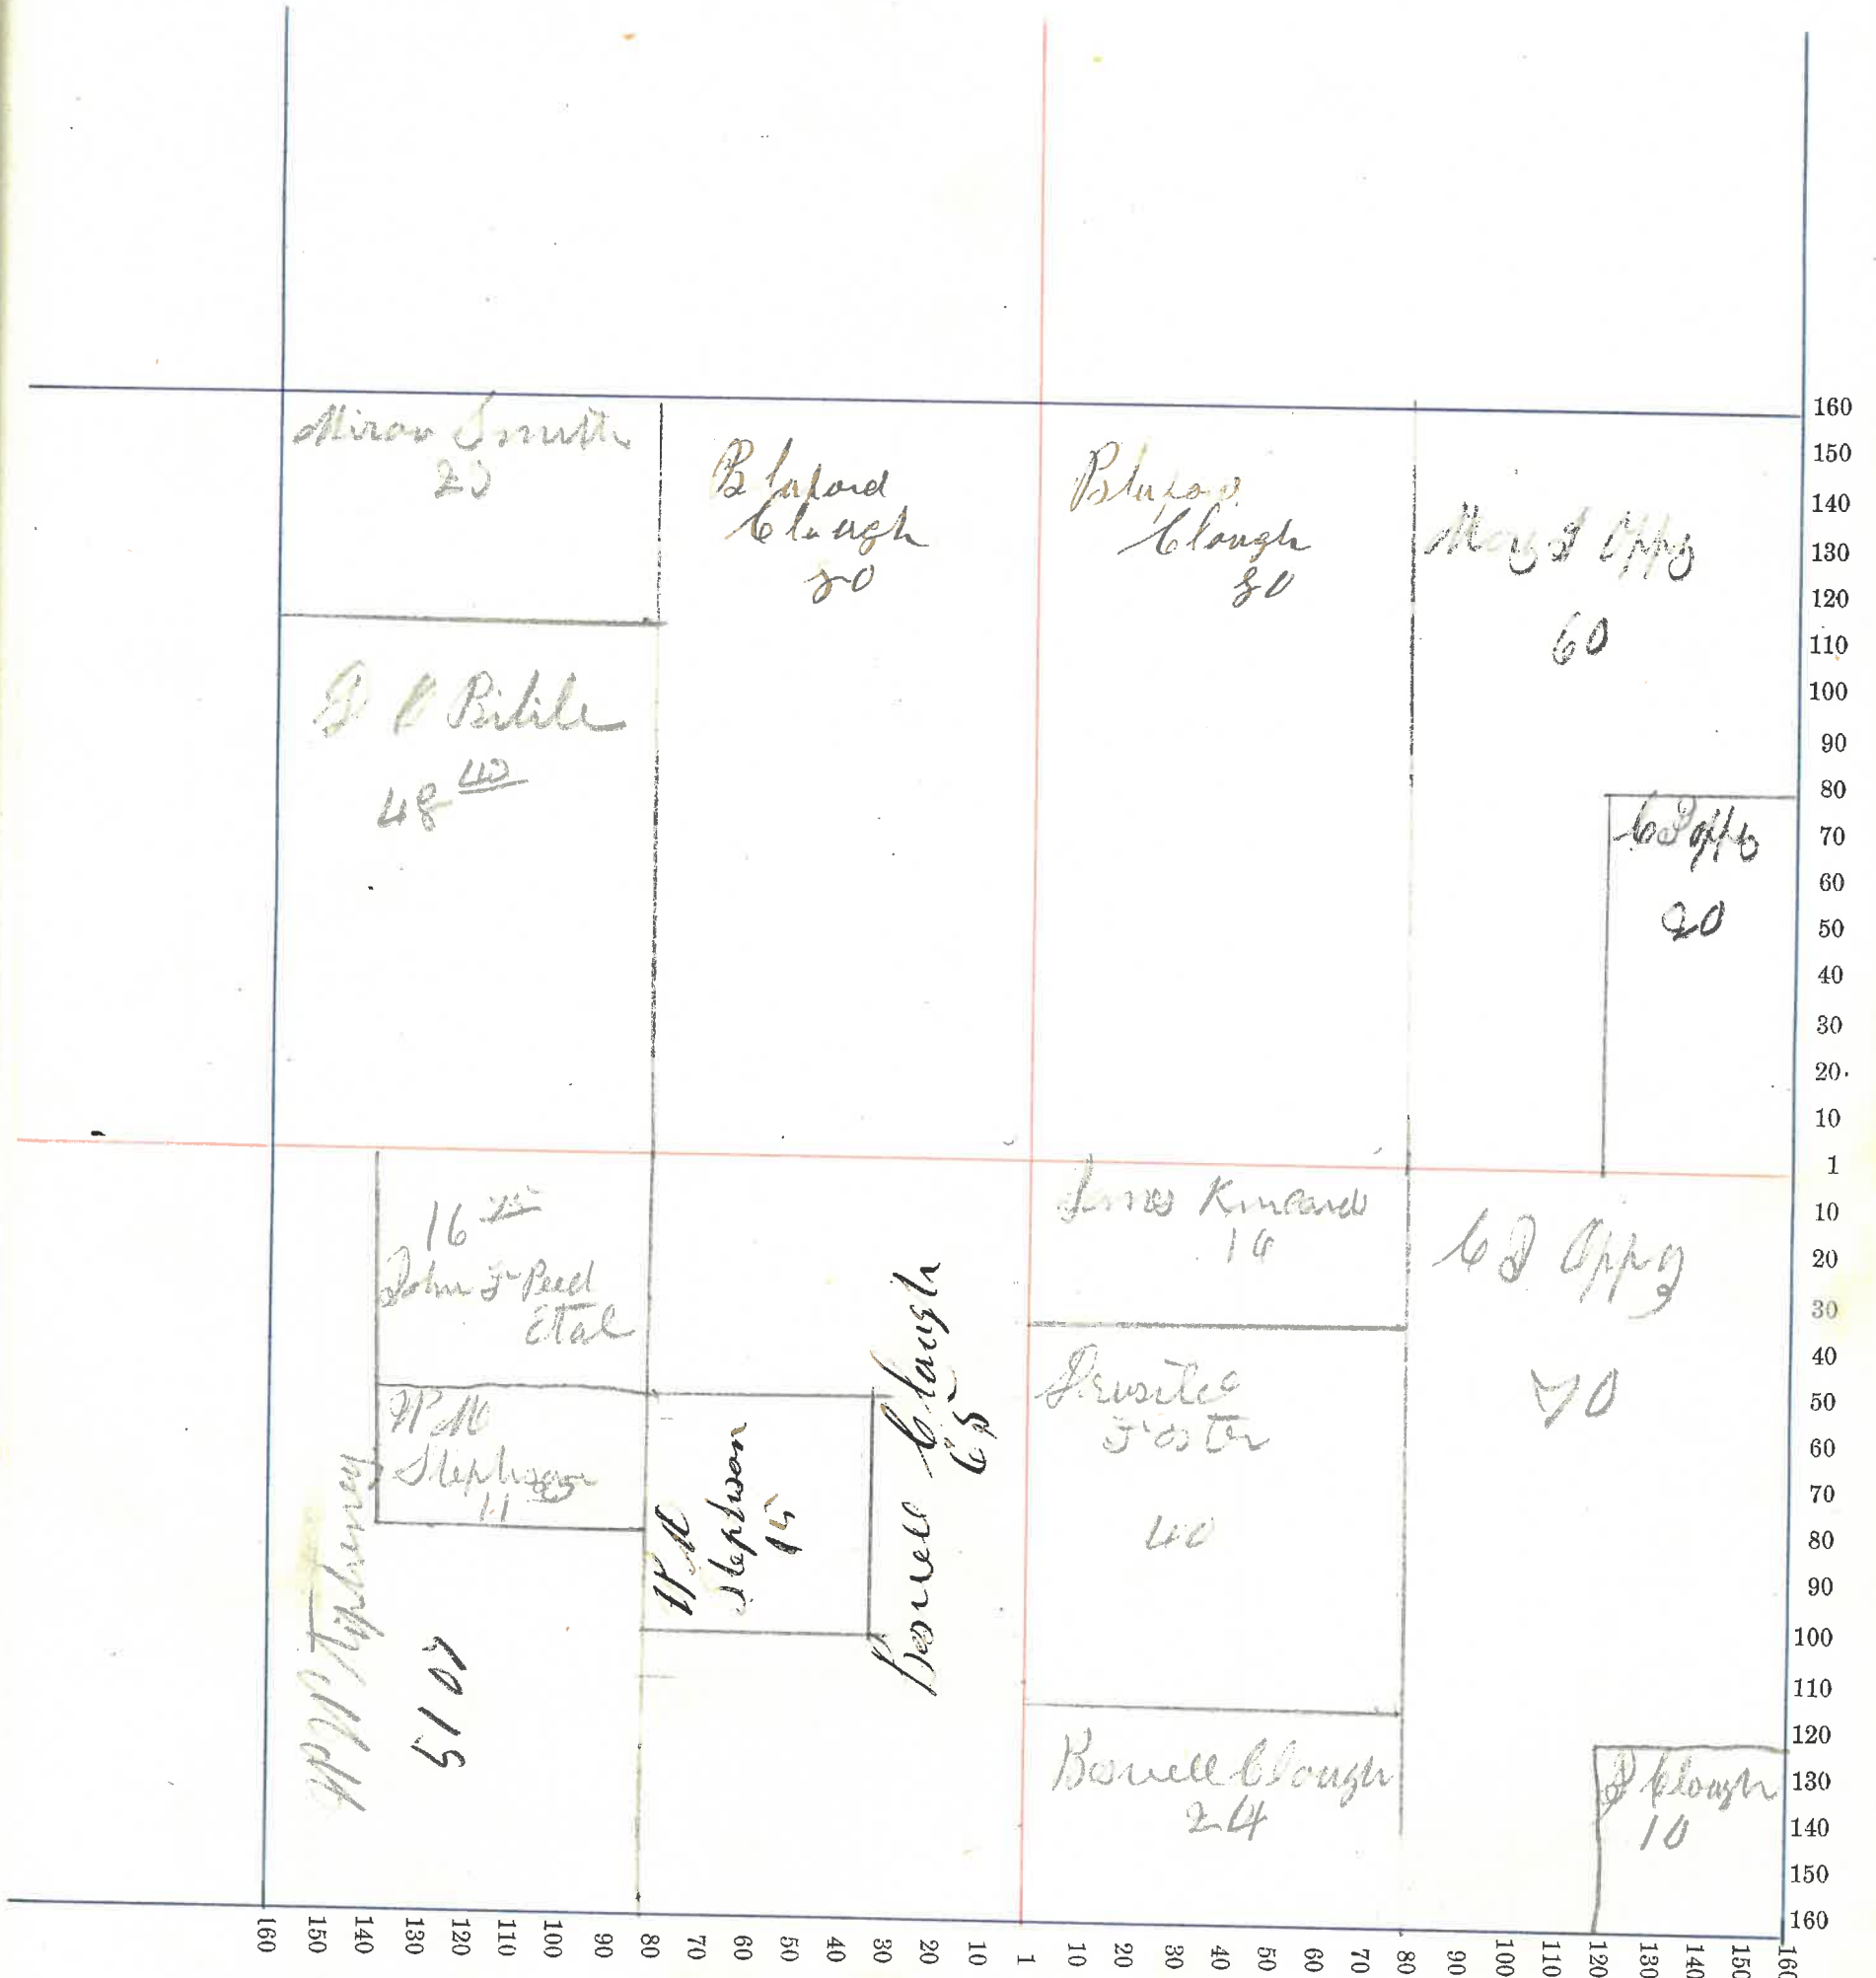 Smith
20
Bluford
Clough
80
Bluford
Clough
80
Oppy
60
48 40
C D Oppy
20
160
150
140
130
120
110
100
90
80
70
60
50
40
30
20
10
1
10
20
30
40
50
60
70
80
90
100
110
120
130
140
150
160
16 75
John F Peed
Etal
W M
Stephson
11
W M
Stephson
15
Clough
65
Kincand
16
Foster
40
C D Oppy
70
Clough
24
Clough
10
51 07
160
150
140
130
120
110
100
90
80
70
60
50
40
30
20
10
1
10
20
30
40
50
60
70
80
90
100
110
120
130
140
150
160